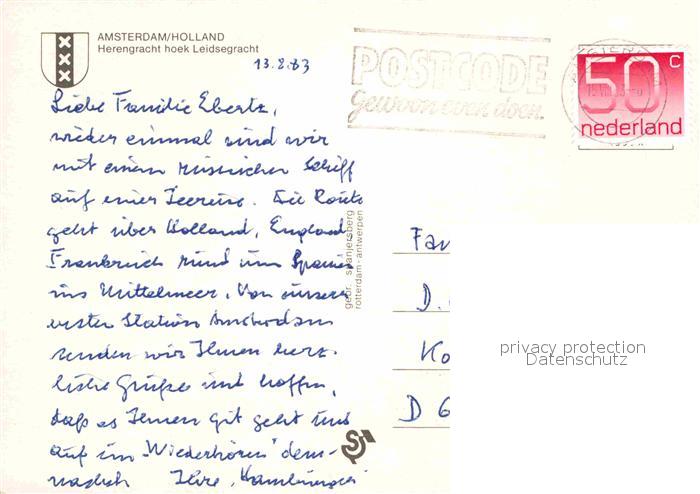 AMSTERDAM/HOLLAND
Herengracht hoek Leidsegracht
13.8.83
Liebe Familie Ebertz,
wieder einmal sind wir
mit einem russischen Schiff
auf einer Seereise. Die Route
geht über Holland, England
Frankreich rund um Spanien
ins Mittelmeer. Von unserer
ersten Station Amsterdam
senden wir Ihnen herz-
liche Grüße und hoffen,
daß es Ihnen gut geht und
auf ein "Wiederhören" dem-
nächst Ihre "Hamburger"
gebr. spanjersberg
rotterdam-antwerpen
POSTCODE
gewoon even doen.
50 c
nederland
Fam
D.
Ko
D 6
privacy protection
Datenschutz